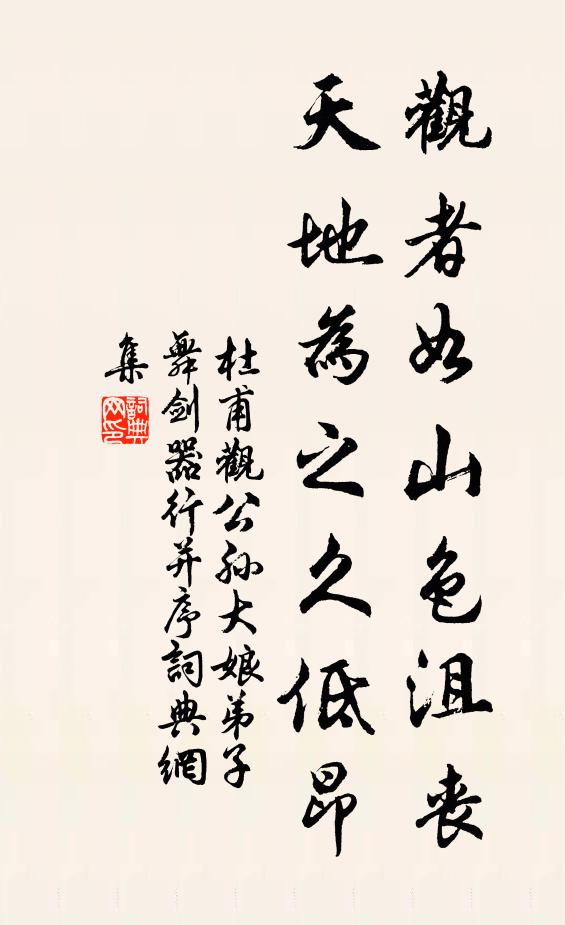 觀者如山色沮喪
天地為之久低昂
杜甫觀公孫大娘弟子
舞劍器行并序詞典網
集
詞典
网印